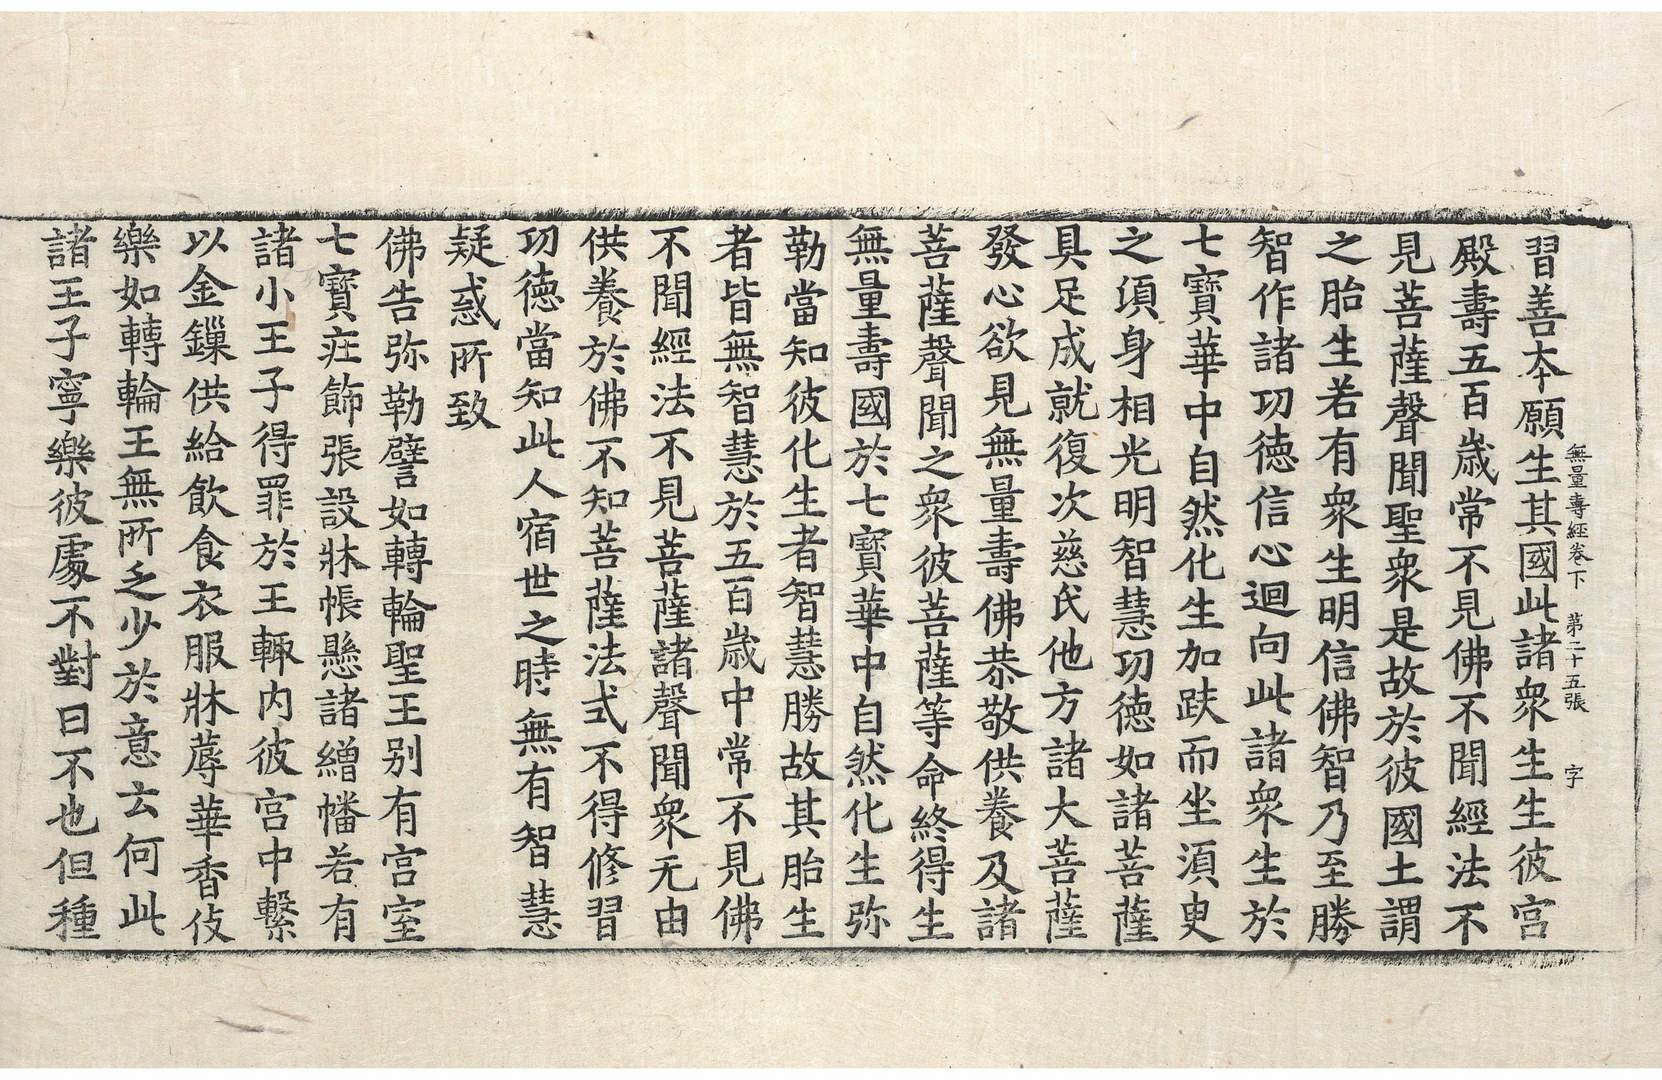 無量壽經卷下 第二十五張 字
習善本願生其國此諸衆生生彼宮
殿壽五百歲常不見佛不聞經法不
見菩薩聲聞聖衆是故於彼國土謂
之胎生若有衆生明信佛智乃至勝
智作諸功德信心迴向此諸衆生於
七寶華中自然化生加趺而坐須臾
之須身相光明智慧功德如諸菩薩
具足成就復次慈氏他方諸大菩薩
發心欲見無量壽佛恭敬供養及諸
菩薩聲聞之衆彼菩薩等命終得生
無量壽國於七寶華中自然化生弥
勒當知彼化生者智慧勝故其胎生
者皆無智慧於五百歲中常不見佛
不聞經法不見菩薩諸聲聞衆无由
供養於佛不知菩薩法式不得修習
功德當知此人宿世之時無有智慧
疑惑所致
佛告弥勒譬如轉輪聖王別有宮室
七寶疘飾張設牀帳懸諸繒幡若有
諸小王子得罪於王輒內彼宮中繫
以金鏁供給飲食衣服牀蓐華香伎
樂如轉輪王無所乏少於意云何此
諸王子寧樂彼處不對曰不也但種